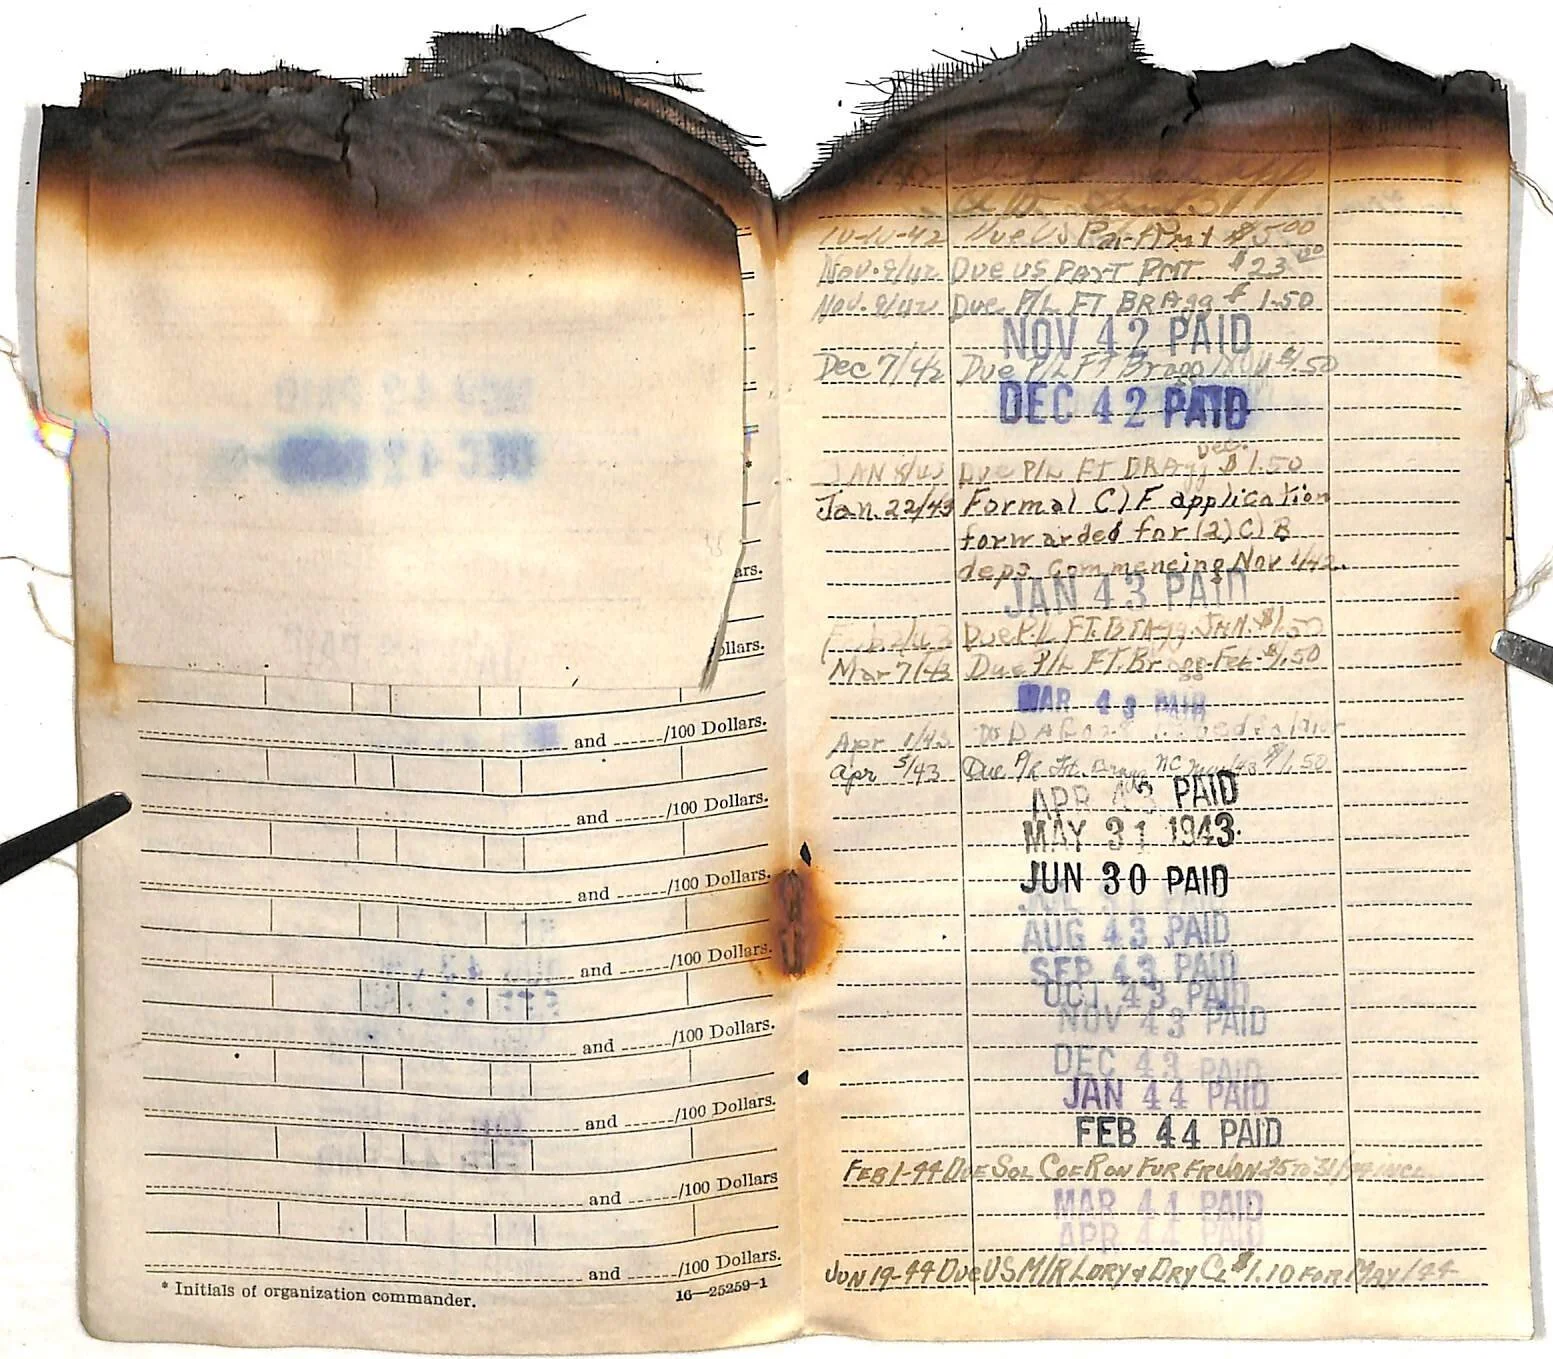 ars.
ollars.
and ______/100 Dollars.
and ______/100 Dollars.
and ______/100 Dollars.
and ______/100 Dollars.
and ______/100 Dollars.
and ______/100 Dollars.
and ______/100 Dollars
and ______/100 Dollars.
* Initials of organization commander.
16—25259-1
10-10-42 Due US Part Pmt $5.00
Nov. 9/42 Due US PART PMT $23.00
Nov. 9/42 Due P/L FT BRAgg $1.50
NOV 42 PAID
Dec 7/42 Due P/L FT Bragg NOV $1.50
DEC 42 PAID
Dec.
JAN 8/43 Due P/L FT BRAgg $1.50
Jan. 22/43 Formal C)F application
forwarded for (2) C)B
deps commencing Nov 1/42.
JAN 43 PAID
Feb 2/43 Due P.L FT. Bragg. JAN. $1.50
Mar 7/43 Due P/L FT. Bragg. Feb. $1.50
MAR 43 PAID
Apr 1/43
Apr 5/43 Due P/L Ft. Bragg NC Mar/43 $1.50
APR 43 PAID
MAY 31 1943
JUN 30 PAID
AUG 43 PAID
SEP 43 PAID
OCT 43 PAID
NOV 43 PAID
DEC 43 PAID
JAN 44 PAID
FEB 44 PAID
FEB 1-44 DUE SOL COER ON FUR FR JAN 25 TO 31/44 INCL
MAR 44 PAID
APR 44 PAID
JUN 19-44 Due US M/R LDRY & DRY CL $1.10 FOR MAY/44